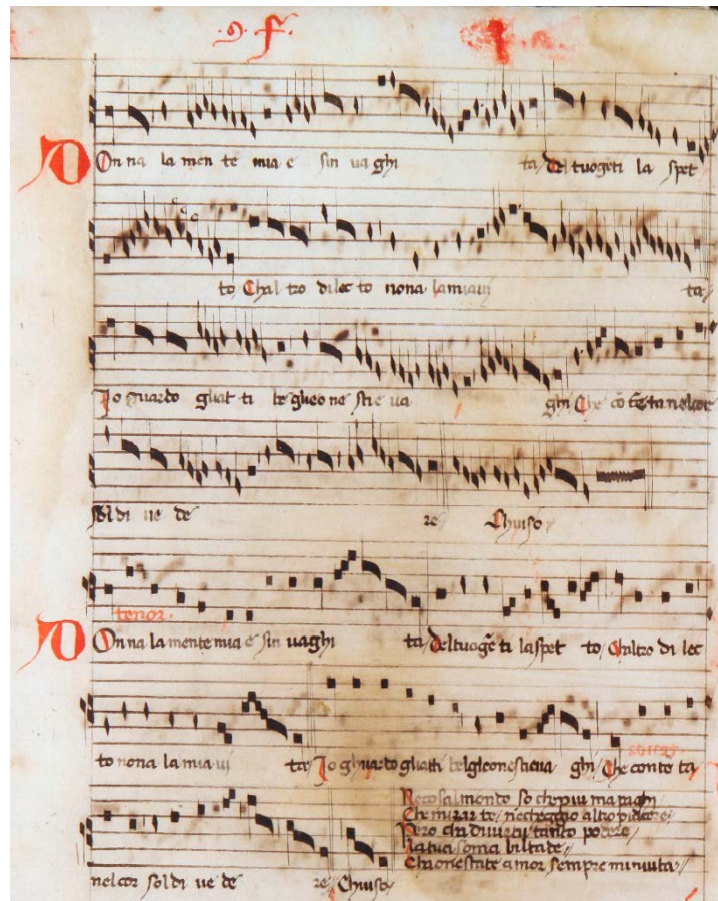 .9. f.
Onna la men te mia e sin vaghi ta/ Del tuogeti la spet
to, Chal tro dilec to nona lamiavi ta/
Jo guardo gliat ti be glieo ne sti e va ghi Che co te ta nel cor
sol di ve de re/ Chiuso/
tenor.
Onna la mente mia e sin vaghi ta/ Del tuoge ti laspet to/ Chaltro di lec
to nona la mia vi ta/ Jo ghuardo gliatti belglieonestieva ghi/ Che conte ta
nelcor sol di ve de re/ Chiuso/
Neco sal mondo so che piu mapaghi
Che mirar te/ necheggio altro piacere/
Pero chi di virtu tanto podere
La tua soma biltade/
Chaonestate amor sempre minvita/